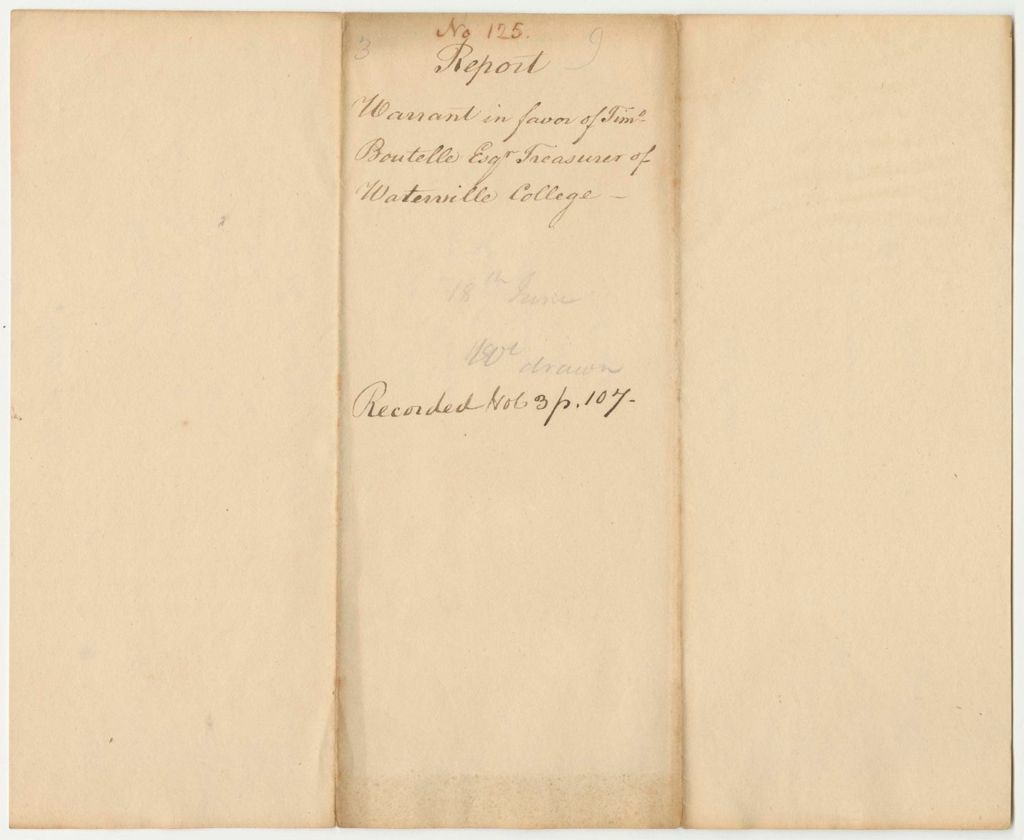 No 125.
3 9
Report
Warrant in favor of Timo.
Boutelle Esqr Treasurer of
Waterville College —
18th June
drawn
Recorded Vol 3 p. 107-